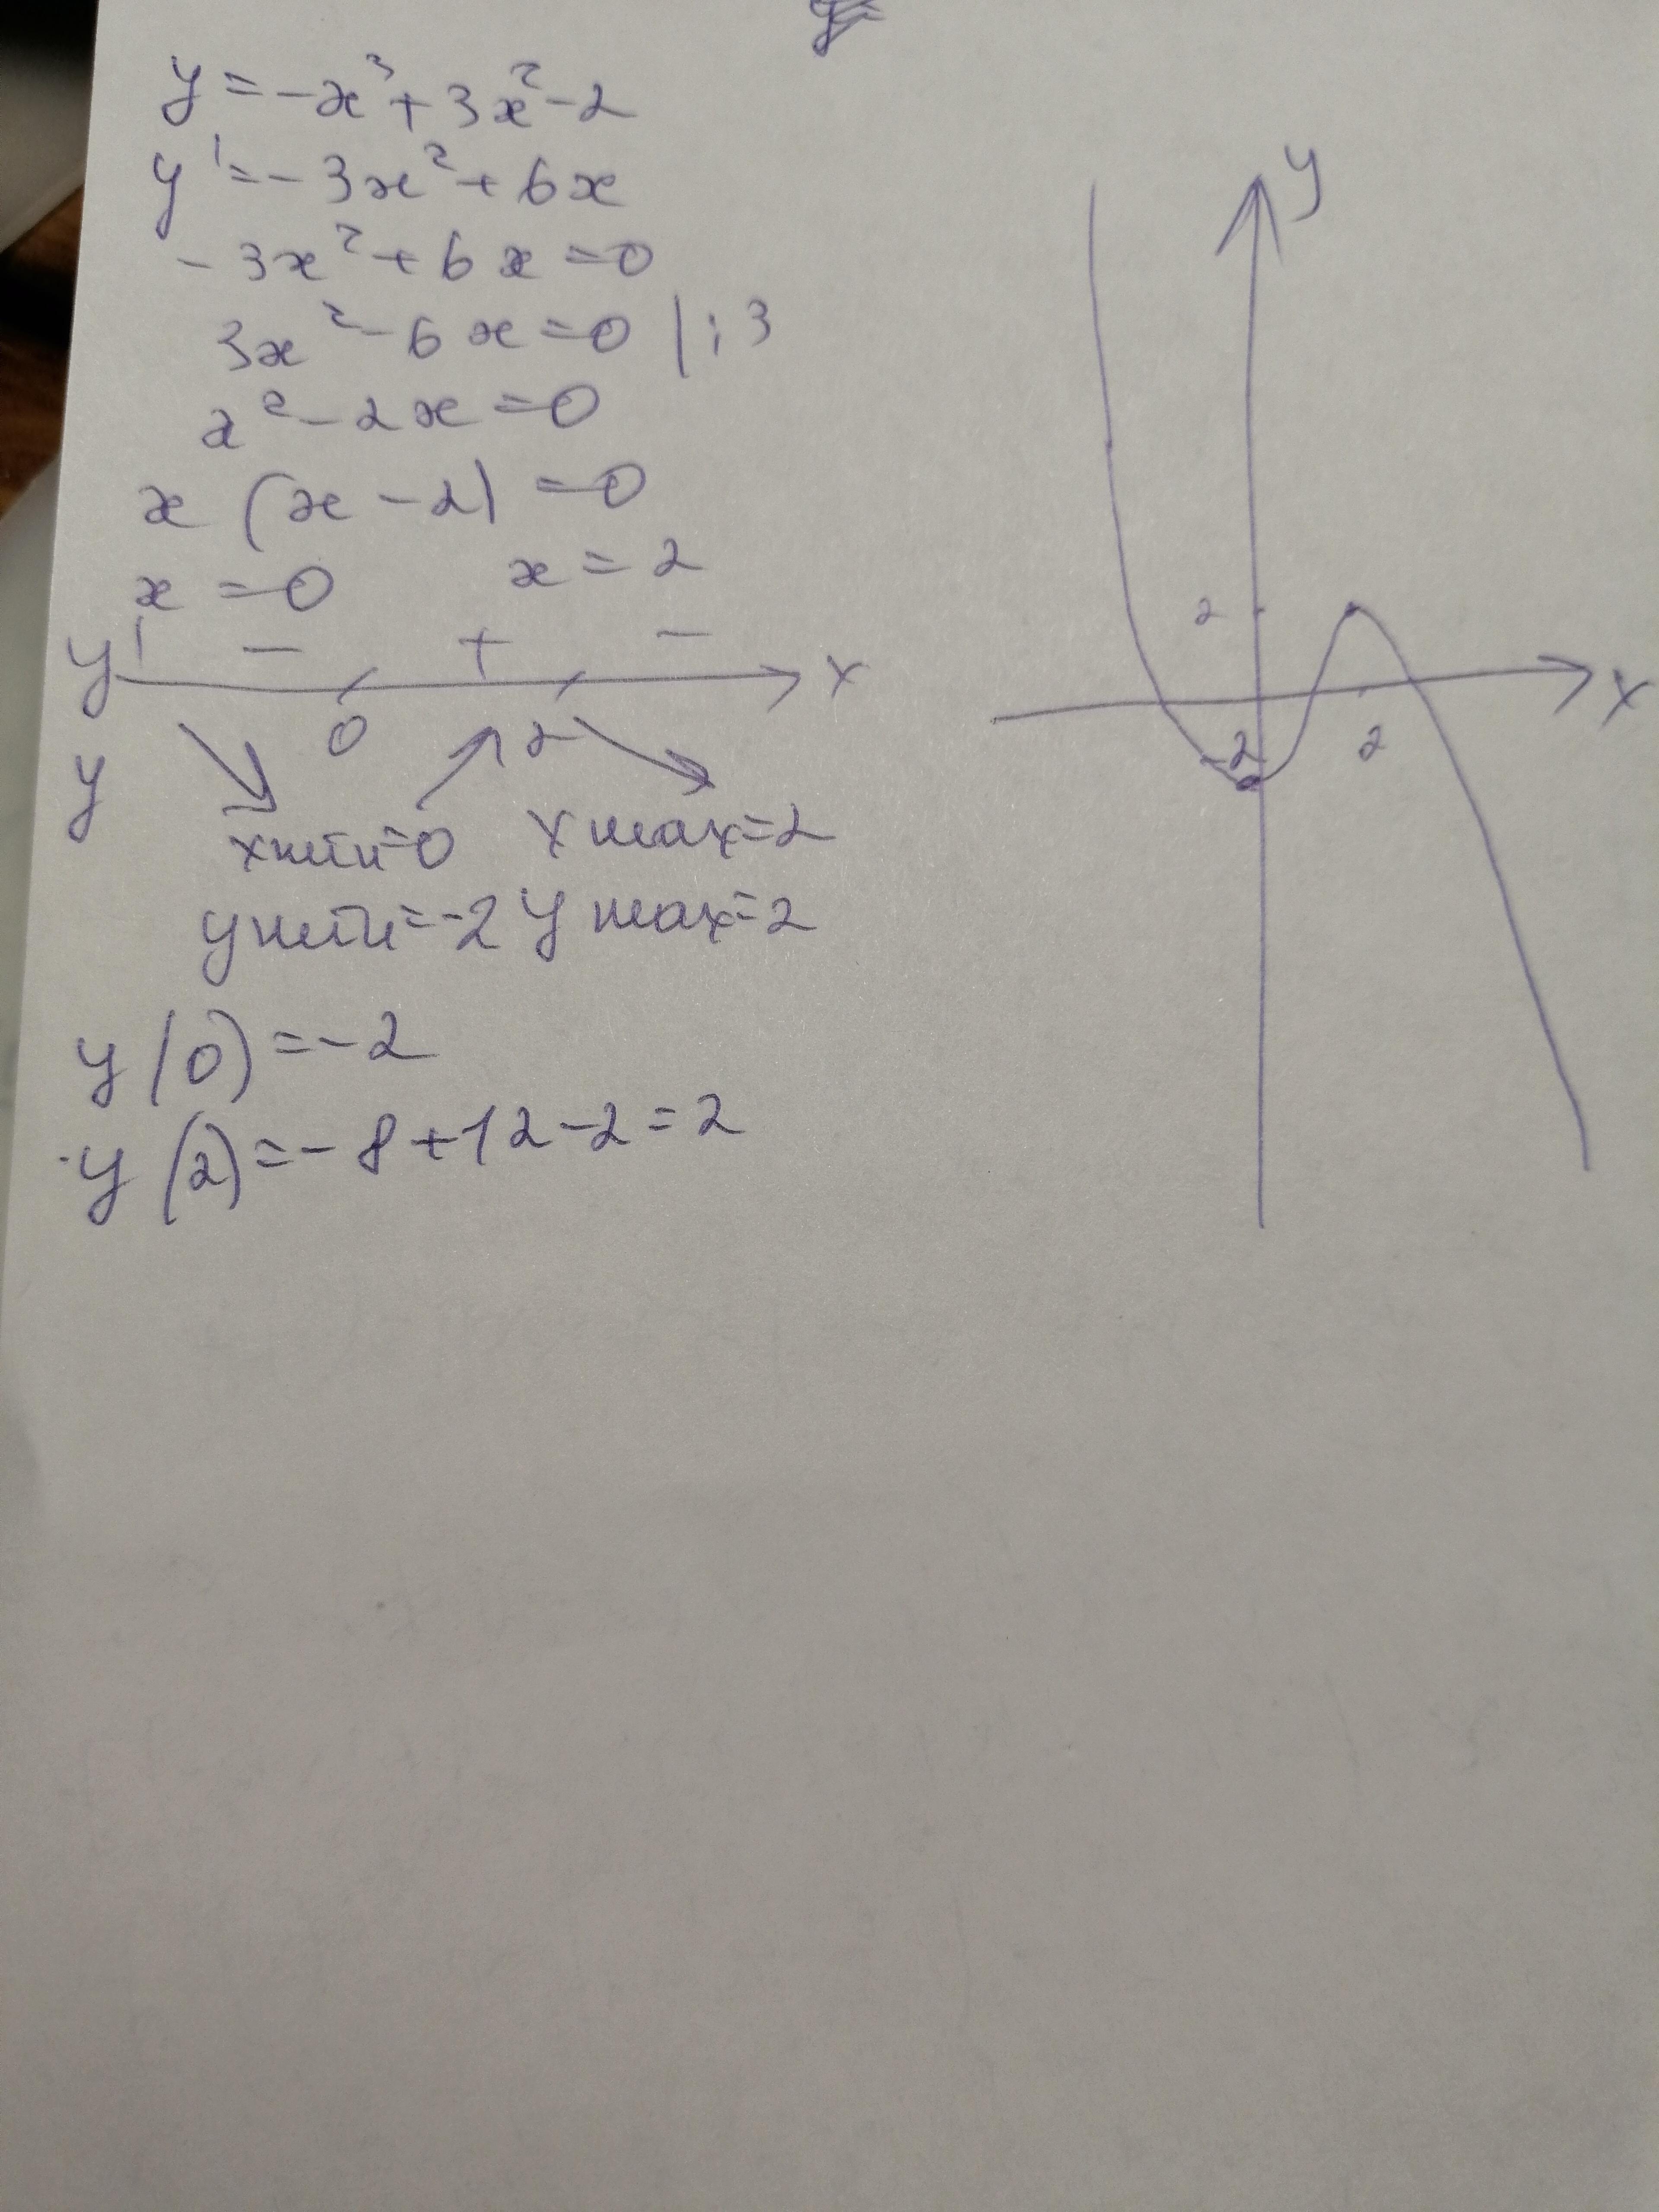 y=
y = -x³ + 3x² - 2
y' = -3x² + 6x
-3x² + 6x = 0
3x² - 6x = 0 | : 3
x² - 2x = 0
x (x - 2) = 0
x = 0 x = 2
y' - + - x
0 2
y
xmin=0 x max=2
ymin=-2 y max=2
y(0) = -2
y(2) = -8 + 12 - 2 = 2
y
2
x
-2 2